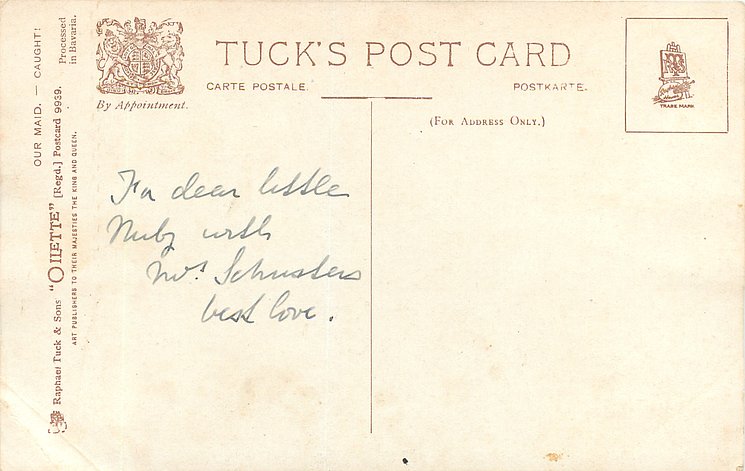 TUCK'S POST CARD
CARTE POSTALE.
POSTKARTE.
By Appointment.
(FOR ADDRESS ONLY.)
TRADE MARK
OUR MAID. — CAUGHT!
Processed
in Bavaria.
Raphael Tuck & Sons "OILETTE" [Regd.] Postcard 9939.
ART PUBLISHERS TO THEIR MAJESTIES THE KING AND QUEEN.
For dear little
with
Mrs Schusters
best love.